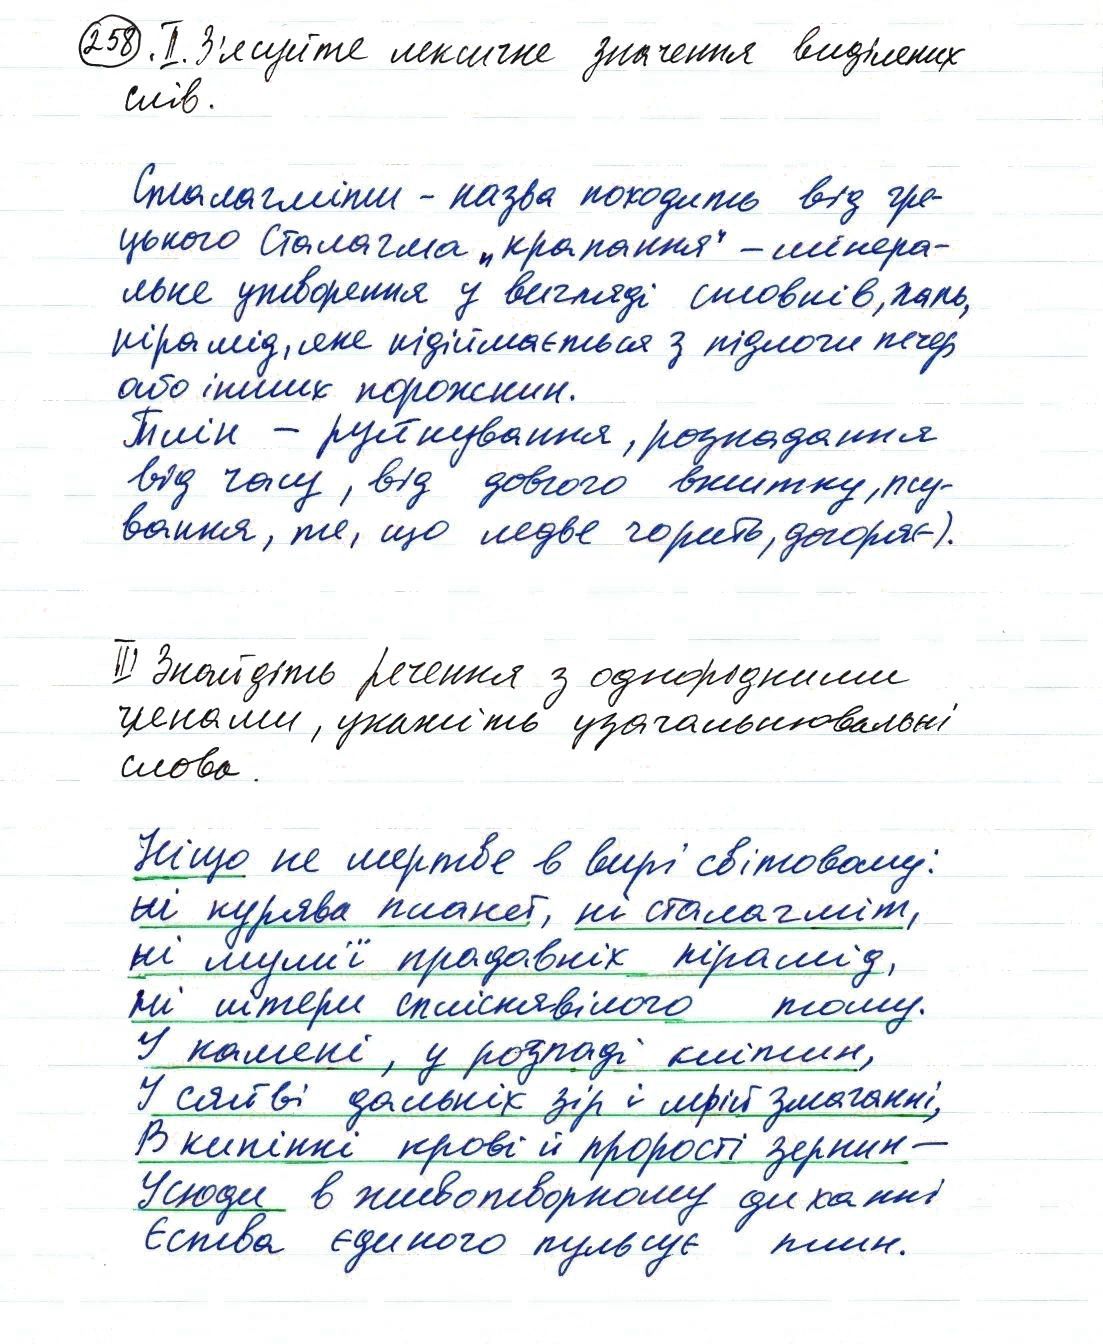 258. II. З'ясуйте лексичне значення виділених
слів.
Сталагміти - назва походить від гре-
цького Сталагма „крапання" - мінера-
льне утворення у вигляді стовпів, паль,
пірамід, яке підіймається з підлоги печер
або інших порожнин.
Тлін - руйнування, розпадання
від часу, від довгого вжитку, псу-
вання, те, що ледве горить, догоряє).
III Знайдіть речення з однорідними
членами, укажіть узагальнювальні
слова.
Ніщо не мертве в вирі світовому:
ні курява планет, ні сталагміт,
ні мумії прадавніх пірамід,
ні літери спліснявілого тому.
У камені, у розпаді клітин,
У сяйві дальніх зір і мрій змаганні,
В кипінні крові й прорості зернин -
Усюди в животворному диханні
Єства єдиного пульсує плин.